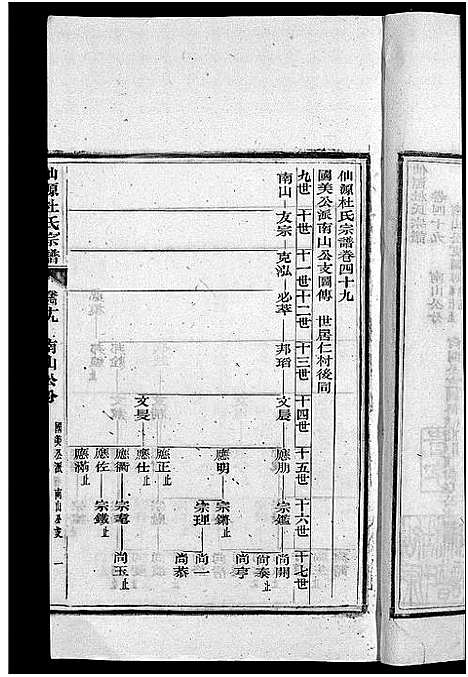 仙源杜氏宗譜卷四十九
國美公派南山公支圖傳 世居仁村後同
九世 十世 十一世 十二世 十三世 十四世 十五世 十六世 十七世
南山 友宗 克泓 必萃 邦瑫 文晨 應朋 宗鑑 尚開
尚泰止
尚亨
應明 宗鏘止
宗理 尚一
尚恭
應正止
文旻 應仕止
應衢 宗 尚玉止
應佐 宗鐵止
應滿止
仙源杜氏宗譜
南山公分
國美公派 南山公支 一